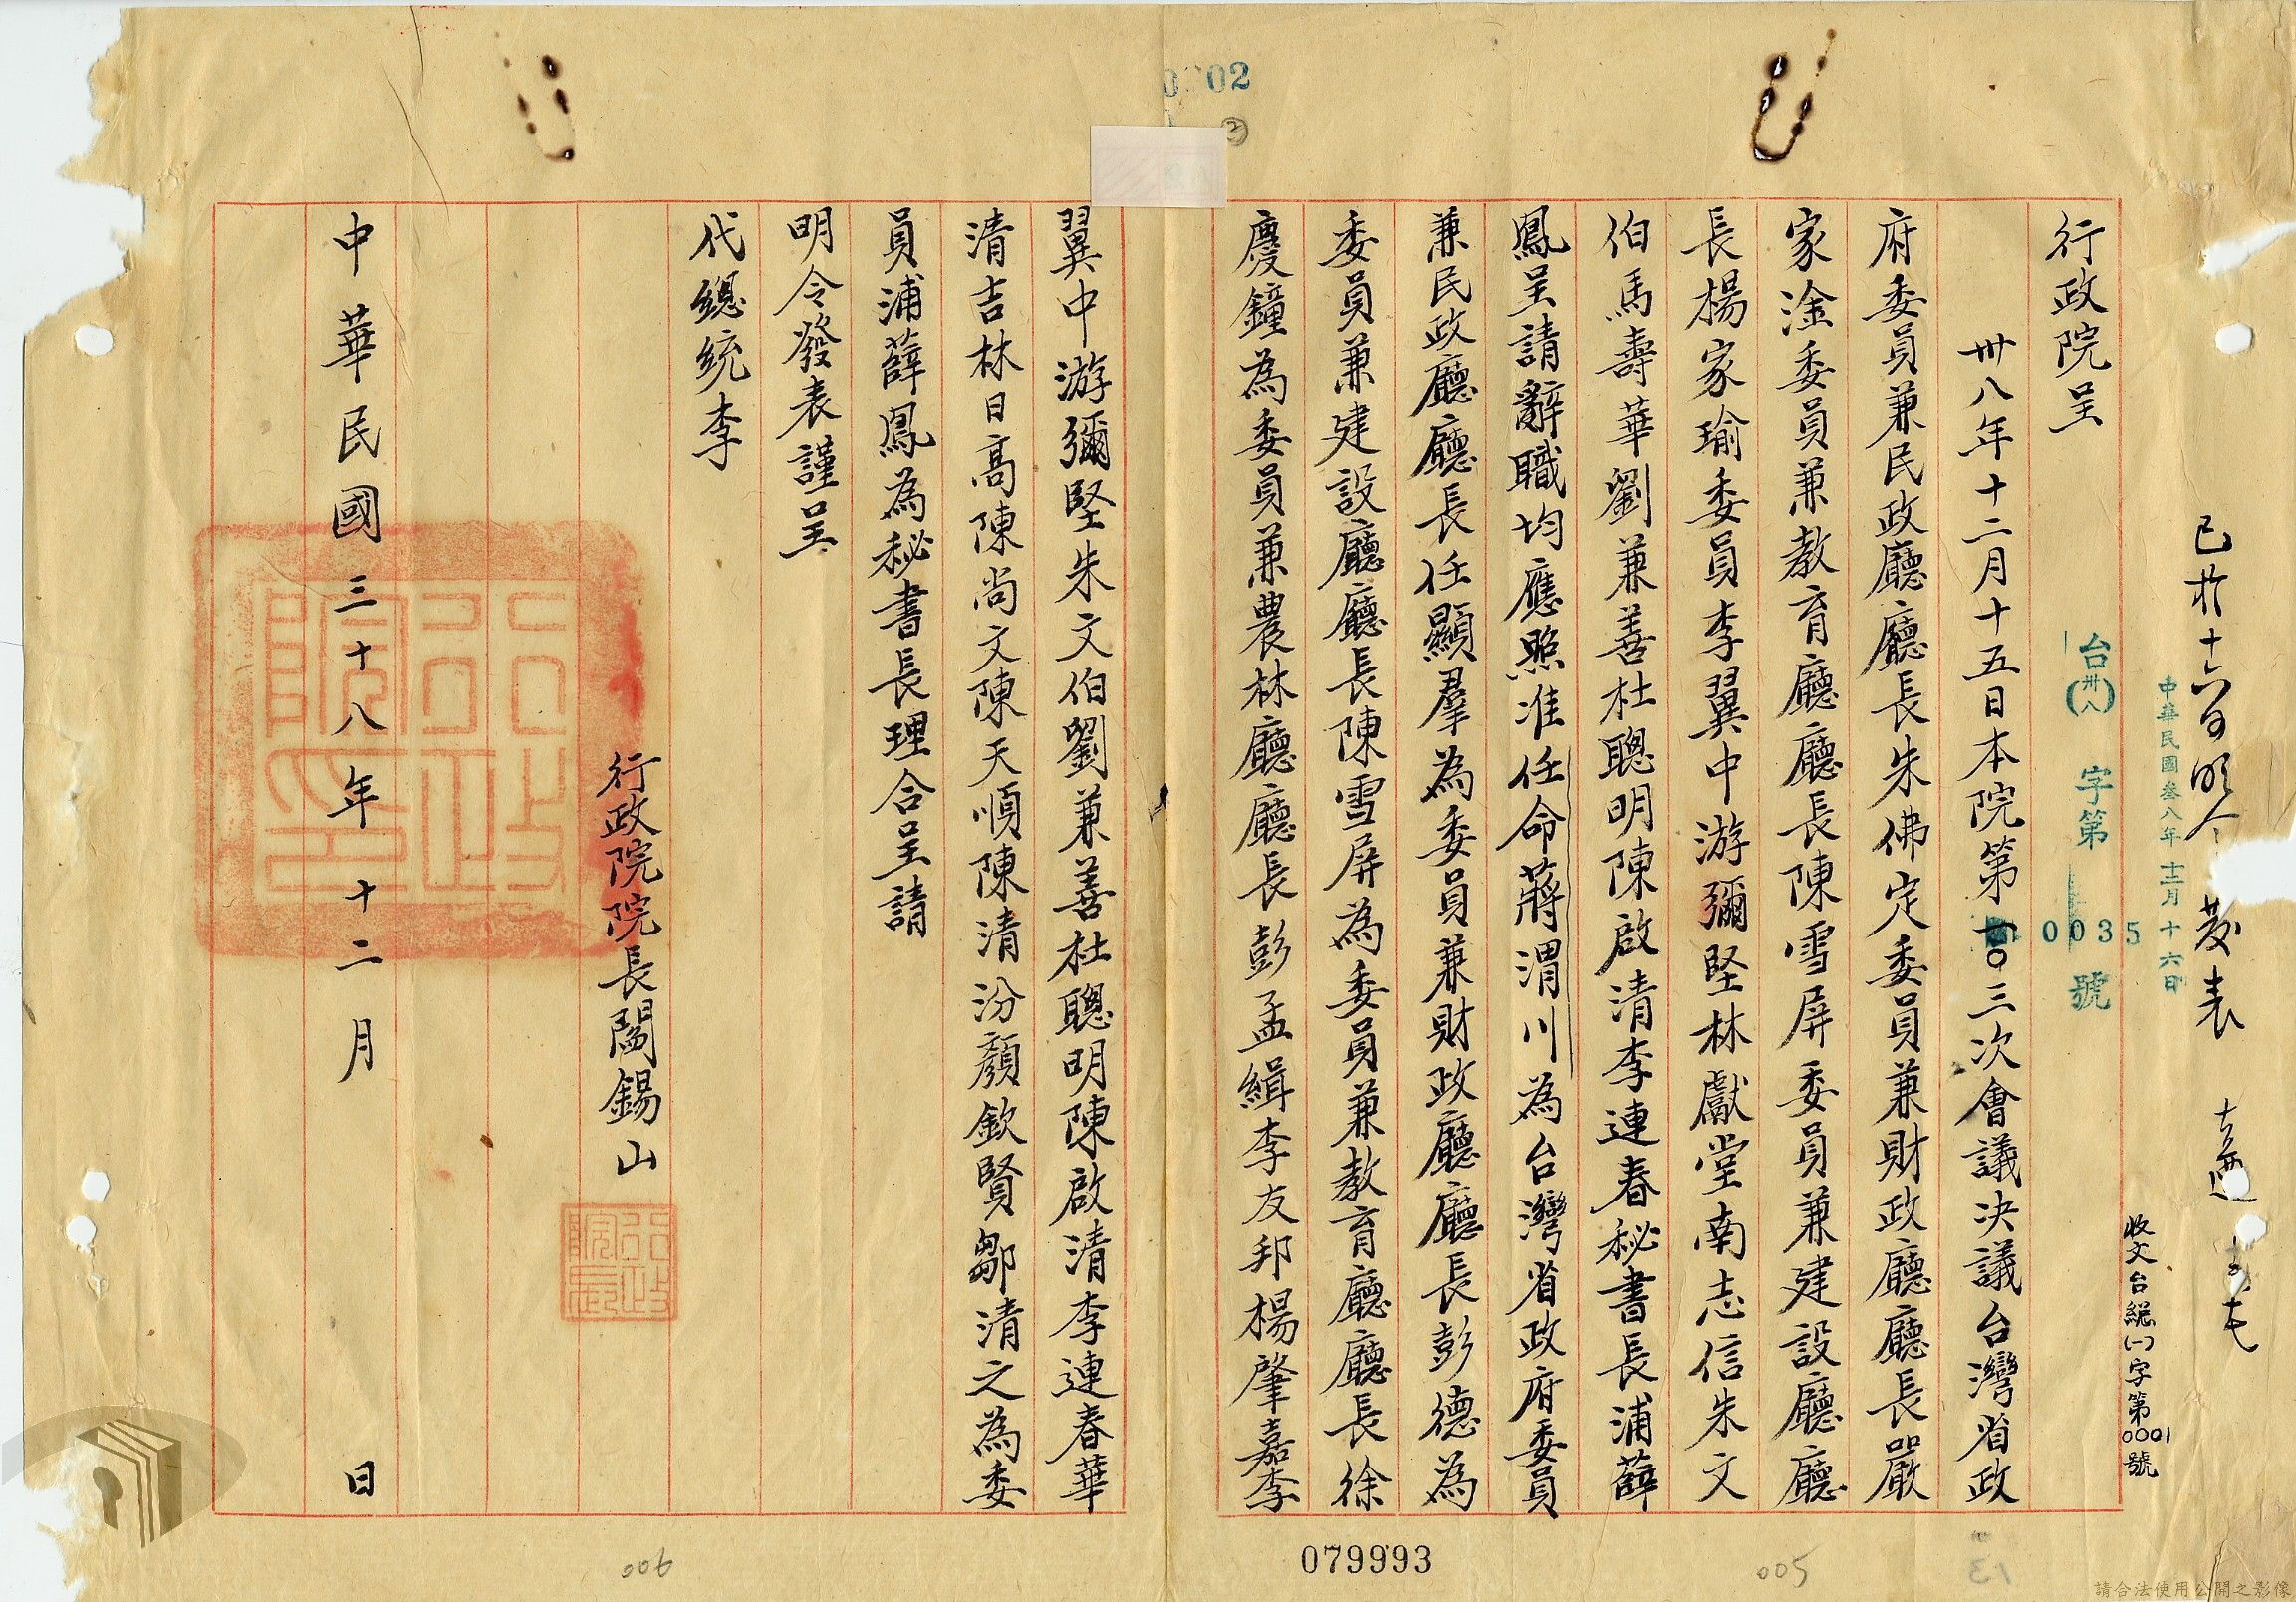 已於十六日明令發表
收文台總(一)字第0001號
中華民國叁八年十二月十六日
台(卅八)字第 0035 號
行政院呈
卅八年十二月十五日本院第一〇三次會議決議台灣省政
府委員兼民政廳廳長朱佛定委員兼財政廳廳長嚴
家淦委員兼教育廳廳長陳雪屏委員兼建設廳廳
長楊家瑜委員李翼中游彌堅林獻堂南志信朱文
伯馬壽華劉兼善杜聰明陳啟清李連春秘書長浦薛
鳳呈請辭職均應照准任命蔣渭川為台灣省政府委員
兼民政廳廳長任顯羣為委員兼財政廳廳長彭德為
委員兼建設廳廳長陳雪屏為委員兼教育廳廳長徐
慶鐘為委員兼農林廳廳長彭孟緝李友邦楊肇嘉李
翼中游彌堅朱文伯劉兼善杜聰明陳啟清李連春華
清吉林日高陳尚文陳天順陳清汾顏欽賢鄒清之為委
員浦薛鳳為秘書長理合呈請
明令發表謹呈
代總統李
行政院院長閻錫山
中華民國三十八年十二月 日
行政院印
行政院長
02
②
079993
005
006
請合法使用公開之影像